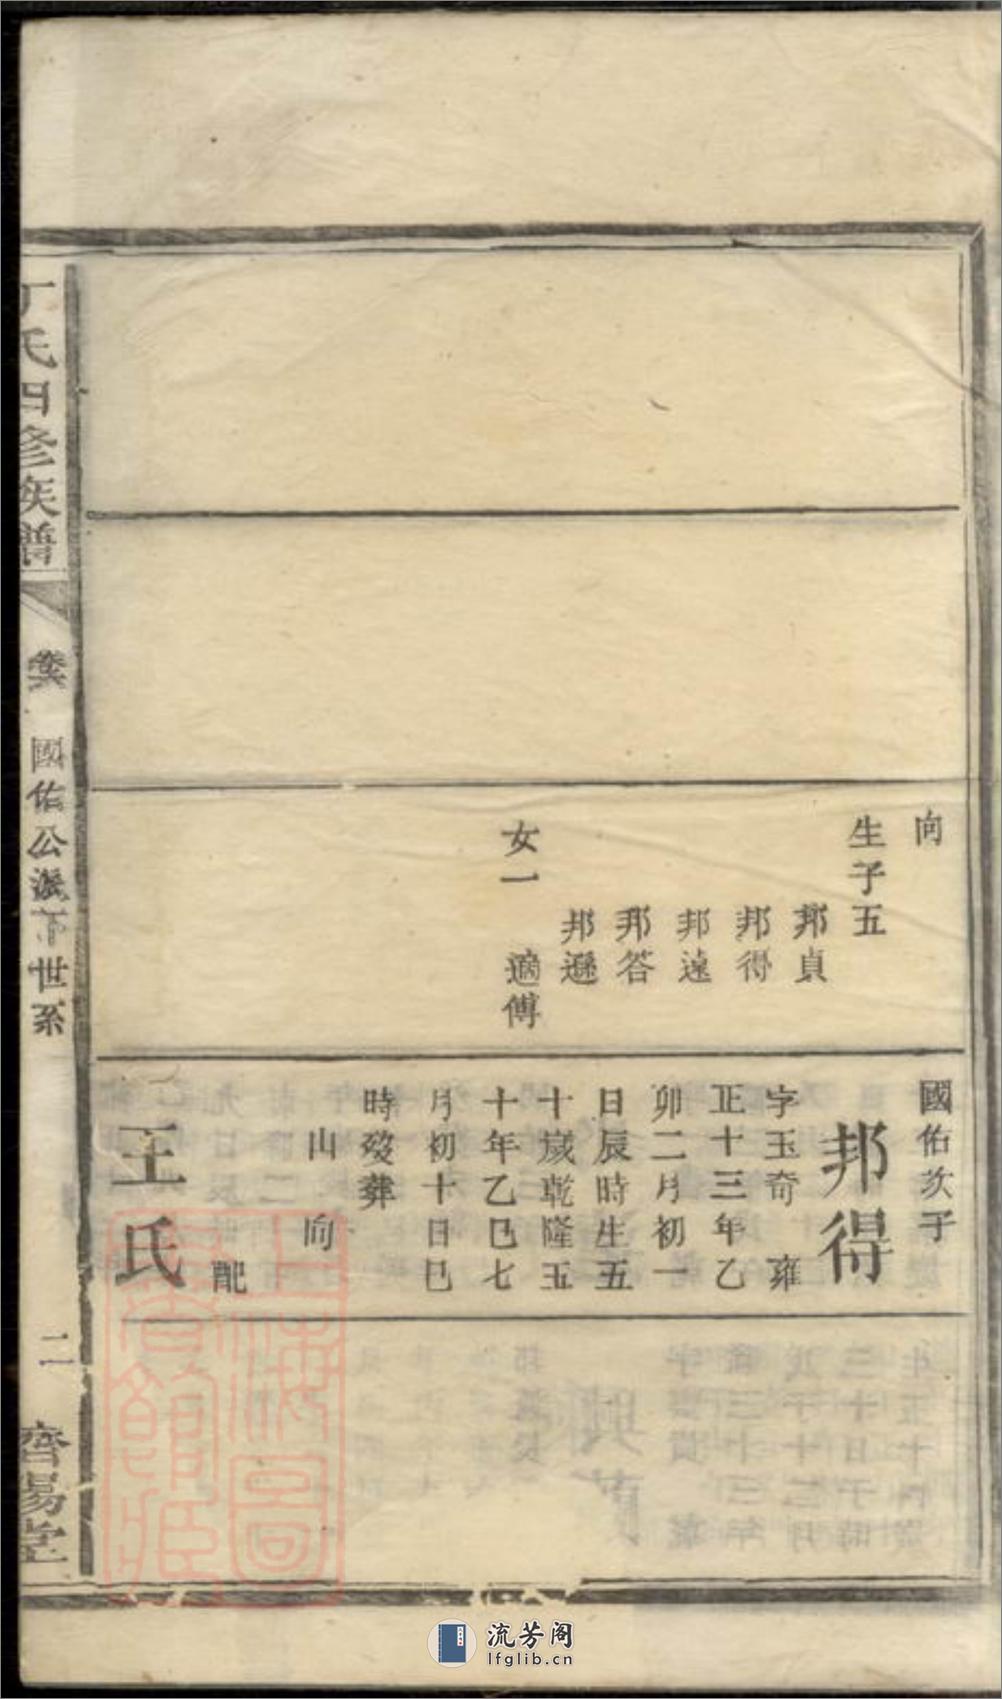 向
生子五
邦貞
邦得
邦遠
邦答
邦遜
女一 適傅
國佑次子
邦得
字玉奇 雍
正十三年乙
卯二月初一
日辰時生五
十歲乾隆五
十年乙巳七
月初十日巳
時歿葬
山向
配
王氏
丁氏四修族譜
國佑公派下世系
二
齊易堂
上海圖書館藏
流芳阁
lfglib.cn